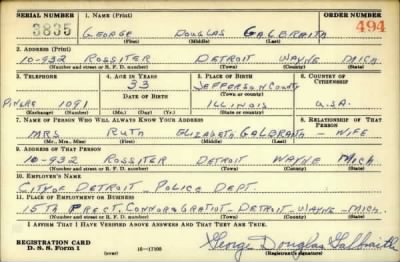 SERIAL NUMBER 1. NAME (Print) ORDER NUMBER
3835 GEORGE DOUGLAS GALBRAITH 494
(First) (Middle) (Last)
2. ADDRESS (Print)
10-932 ROSSITER DETROIT WAYNE MICH.
(Number and street or R. F. D. number) (Town) (County) (State)
3. TELEPHONE 4. AGE IN YEARS 5. PLACE OF BIRTH 6. COUNTRY OF CITIZENSHIP
33 JEFFERSON COUNTY
DATE OF BIRTH (Town or county)
1091 ILLINOIS U.S.A.
(Exchange) (Number) (Mo.) (Day) (Yr.) (State or country)
7. NAME OF PERSON WHO WILL ALWAYS KNOW YOUR ADDRESS 8. RELATIONSHIP OF THAT PERSON
MRS RUTH ELIZABETH GALBRAITH - WIFE
(Mr., Mrs., Miss) (First) (Middle) (Last)
9. ADDRESS OF THAT PERSON
10-932 ROSSITER DETROIT WAYNE MICH
(Number and street or R. F. D. number) (Town) (County) (State)
10. EMPLOYER'S NAME
CITY OF DETROIT - POLICE DEPT.
11. PLACE OF EMPLOYMENT OR BUSINESS
15TH PRECT. CONNOR & GRATIOT - DETROIT - WAYNE - MICH.
(Number and street or R. F. D. number) (Town) (County) (State)
I AFFIRM THAT I HAVE VERIFIED ABOVE ANSWERS AND THAT THEY ARE TRUE.
REGISTRATION CARD George Douglas Galbraith
D. S. S. FORM 1 (over) 16-17105 (Registrant's signature)